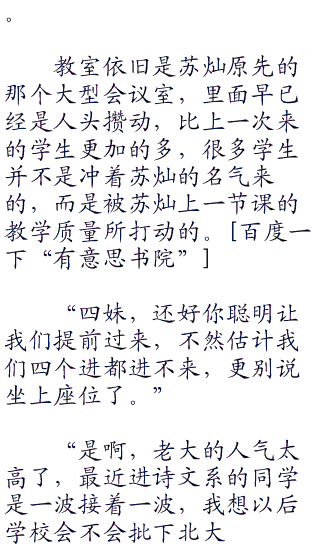 。
教室依旧是苏灿原先的
那个大型会议室，里面早已
经是人头攒动，比上一次来
的学生更加的多，很多学生
并不是冲着苏灿的名气来
的，而是被苏灿上一节课的
教学质量所打动的。[百度一
下“有意思书院”]
“四妹，还好你聪明让
我们提前过来，不然估计我
们四个进都进不来，更别说
坐上座位了。”
“是啊，老大的人气太
高了，最近进诗文系的同学
是一波接着一波，我想以后
学校会不会批下北大